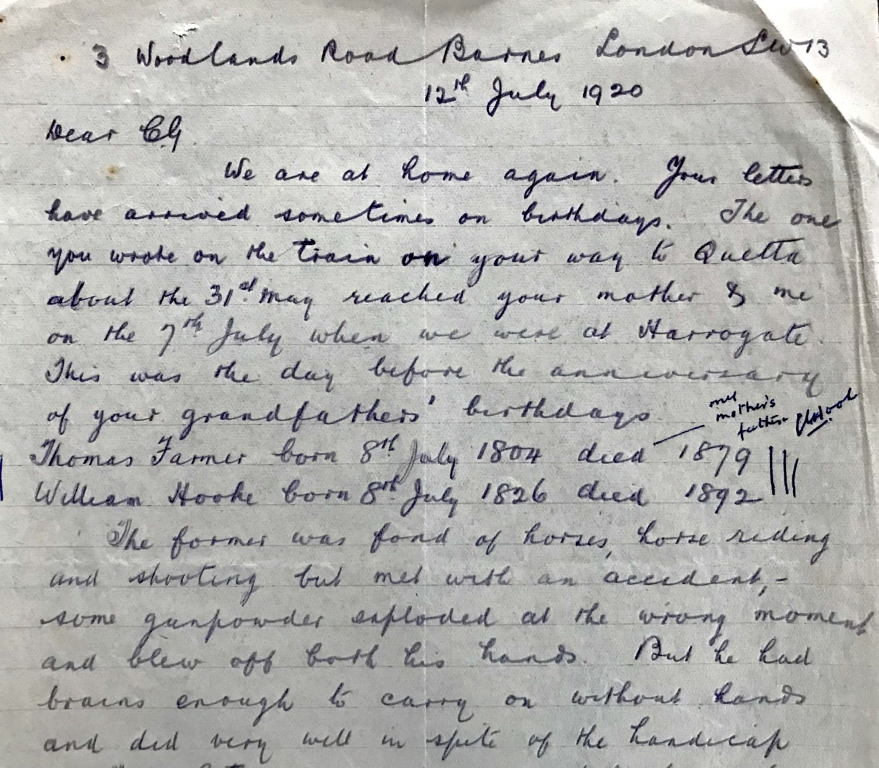 3 Woodlands Road Barnes London SW13
12th July 1920
Dear CG
We are at home again. Your letters
have arrived sometimes on birthdays. The one
you wrote on the train on your way to Quetta
about the 31st May reached your mother & me
on the 7th July when we were at Harrogate.
This was the day before the anniversary
of your grandfathers' birthdays
my
mother's
father
Thomas Farmer born 8th July 1804 died 1879
William Hooke born 8th July 1826 died 1892
The former was fond of horses, horse riding
and shooting but met with an accident, -
some gunpowder exploded at the wrong moment
and blew off both his hands. But he had
brains enough to carry on without hands
and did very well in spite of the handicap